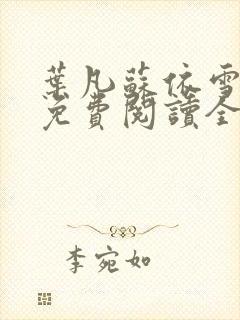 葉凡蘇依雪
免費閱讀全
李宛如